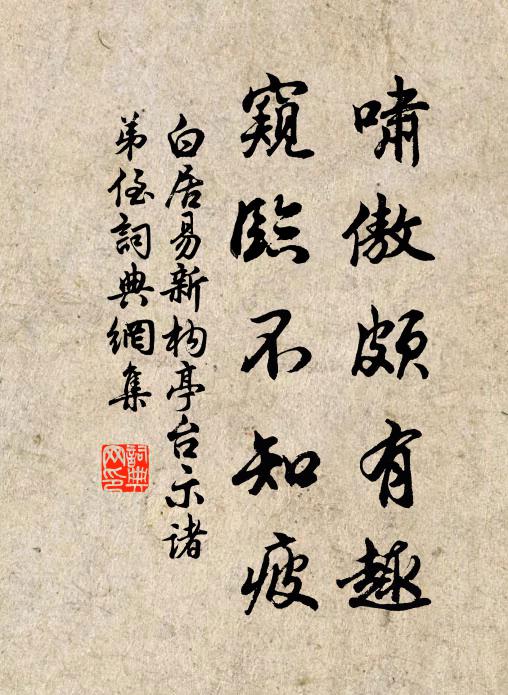 嘯傲頗有趣
窺臨不知疲
白居易新构亭台示諸
弟侄詞典網集
詞典
网印